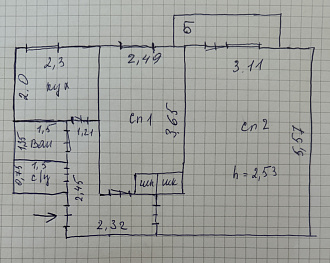 Б
2,3
2,49
3.11
2.0
кух
сп1
3,65
сп2
1,5
1,21
1,35
Ван
5,57
1,5
0,75
с/у
2,45
шк
шк
h = 2,53
2,32